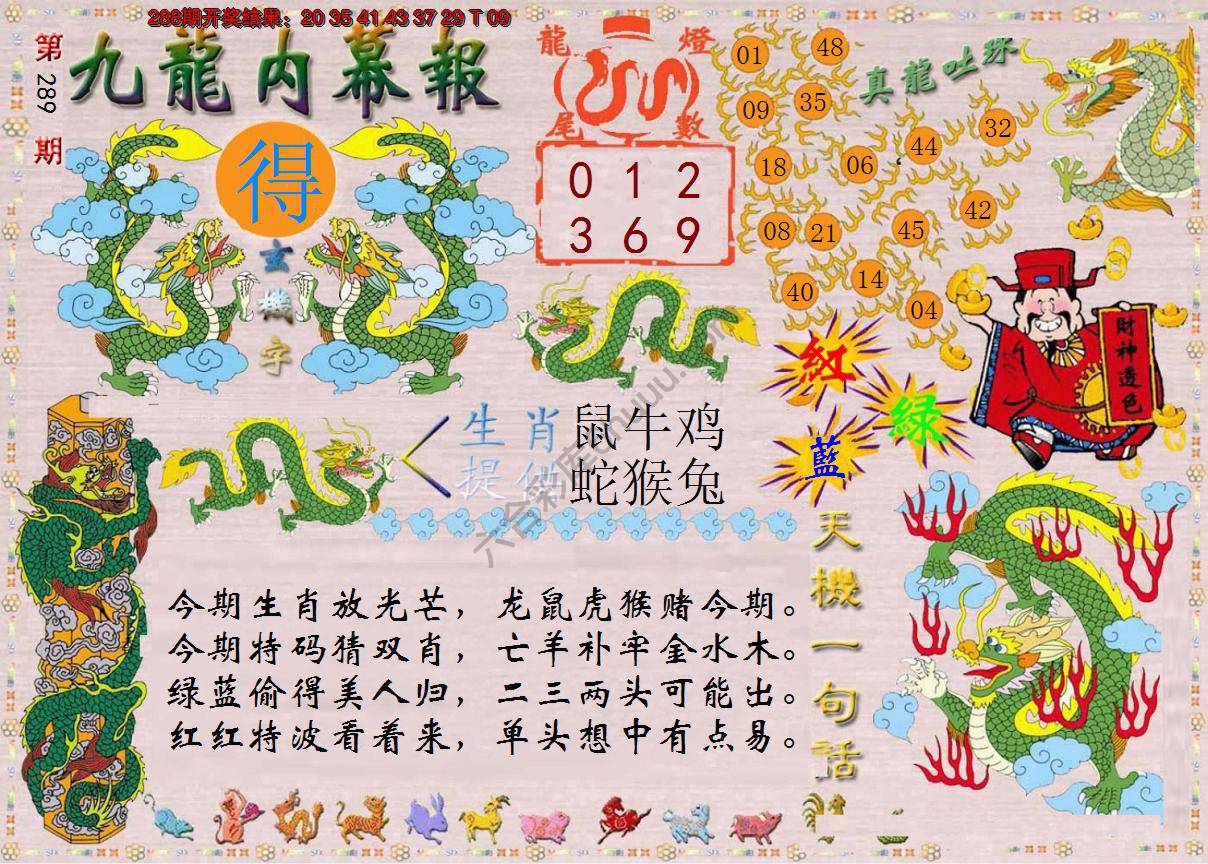 288期开奖结果：20 35 41 43 37 29 T 09
第289期
九龍内幕報
得
玄機字
龍燈尾數
0 1 2
3 6 9
真龍吐珠
01 48
09 35
44 32
18 06
42
08 21 45
14
40 04
財神透色
紅
綠
藍
生肖 鼠牛鸡
提供 蛇猴兔
六合彩库
天機一句話
今期生肖放光芒，龙鼠虎猴赌今期。
今期特码猜双肖，亡羊补牢金水木。
绿蓝偷得美人归，二三两头可能出。
红红特波看着来，单头想中有点易。